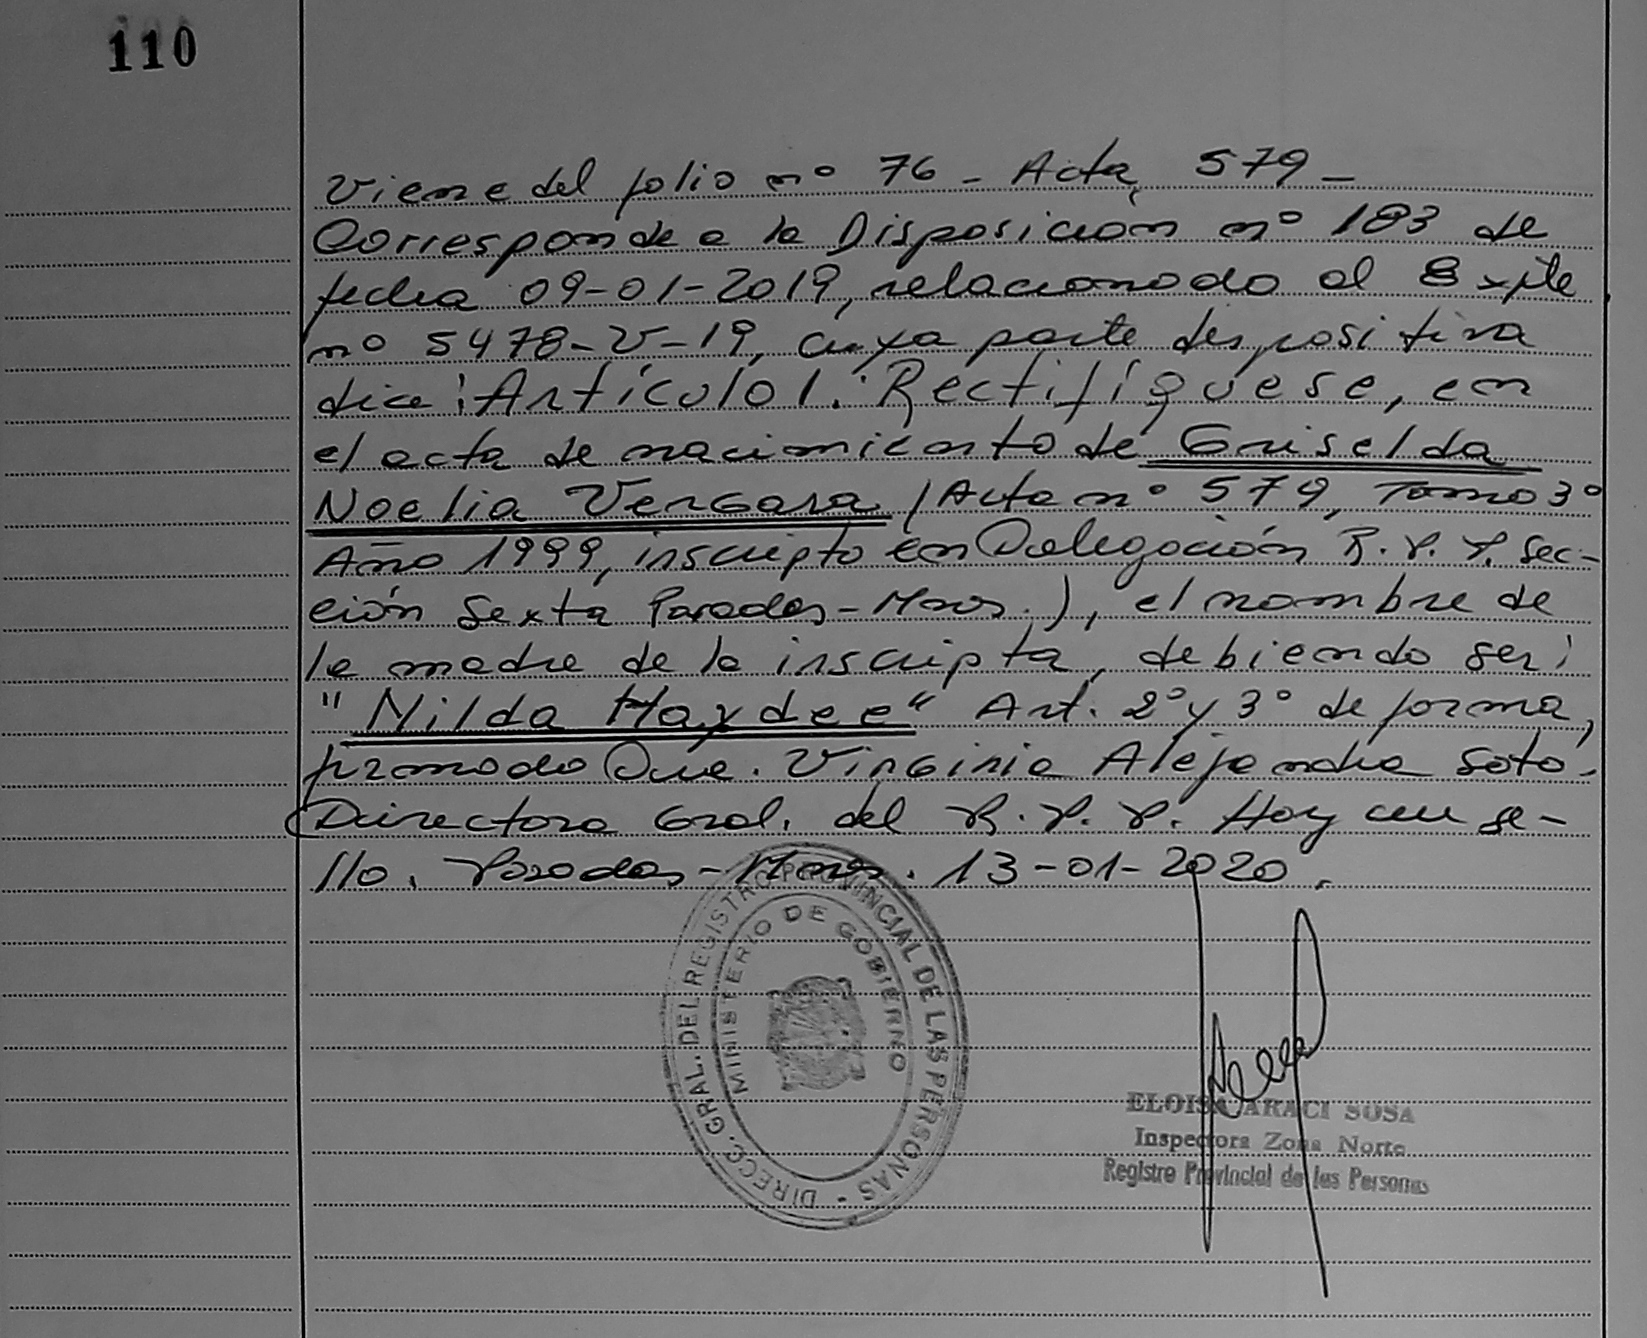 110
Viene del folio nº 76 - Acta, 579 -
Corresponde a la Disposición nº 183 de
fecha 09-01-2019, relacionado al Expte
nº 5478-V-19, cuya parte dispositiva
dice: Artículo 1. Rectifíquese, en
el acta de nacimiento de Griselda
Noelia Vergara (Acta nº 579, Tomo 3º
Año 1999, inscripto en Delegación R. P. P. Sec-
ción Sexta Posadas - Mnes.), el nombre de
la madre de la inscripta, debiendo ser:
"Nilda Haydee" Art. 2º y 3º de forma,
firmado Dra. Virginia Alejandra Soto.
Directora Gral. del R. P. P. Hoy un se-
llo. Posadas - Mnes. 13-01-2020.
DIRECC. GRAL. DEL REGISTRO PROVINCIAL DE LAS PERSONAS -
MINISTERIO DE GOBIERNO
ELOISA ARACI SOSA
Inspectora Zona Norte
Registro Provincial de las Personas